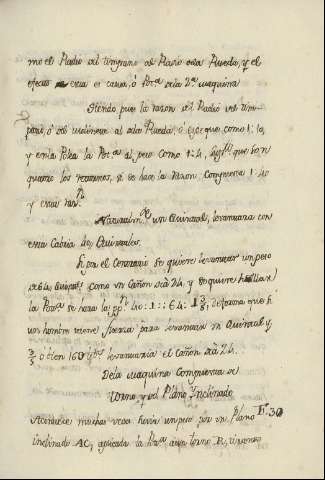 mo el Radio del timpano al Radio dela Rueda, y el
efecto esta es causa, ó Pot.ª dela 2.ª maquina
Siendo pues la razon del Radio del tim-
pano, ó del cilindro al dela Rueda, ó ege que como 1: 10,
y en la Polea la Pot.ª al peso como 1: 4, que son
quatro los retornos, si se hace la razon Compuesta 1: 40
y esta
Naturalm.te un Quintal, levantaria con
esta Cabria 40 Quintales.
Si por el Contrario se quiere levantar un peso
de 64 Quint.s como un Cañon de à 24, y se quiere hallar
la Pot.ª se hara la pp.n 40: 1 :: 64: 1 3/5, de forma que si
un hombre tiene fuerza para levantar un Quintal y
3/5 ó bien 160 levantaria el Cañon de à 24.
Dela maquina Compuesta de
torno y del Plano Inclinado
Acontece muchas veces havér un peso por un Plano F. 30
inclinado AC, aplicada la Pot.ª à un torno R,